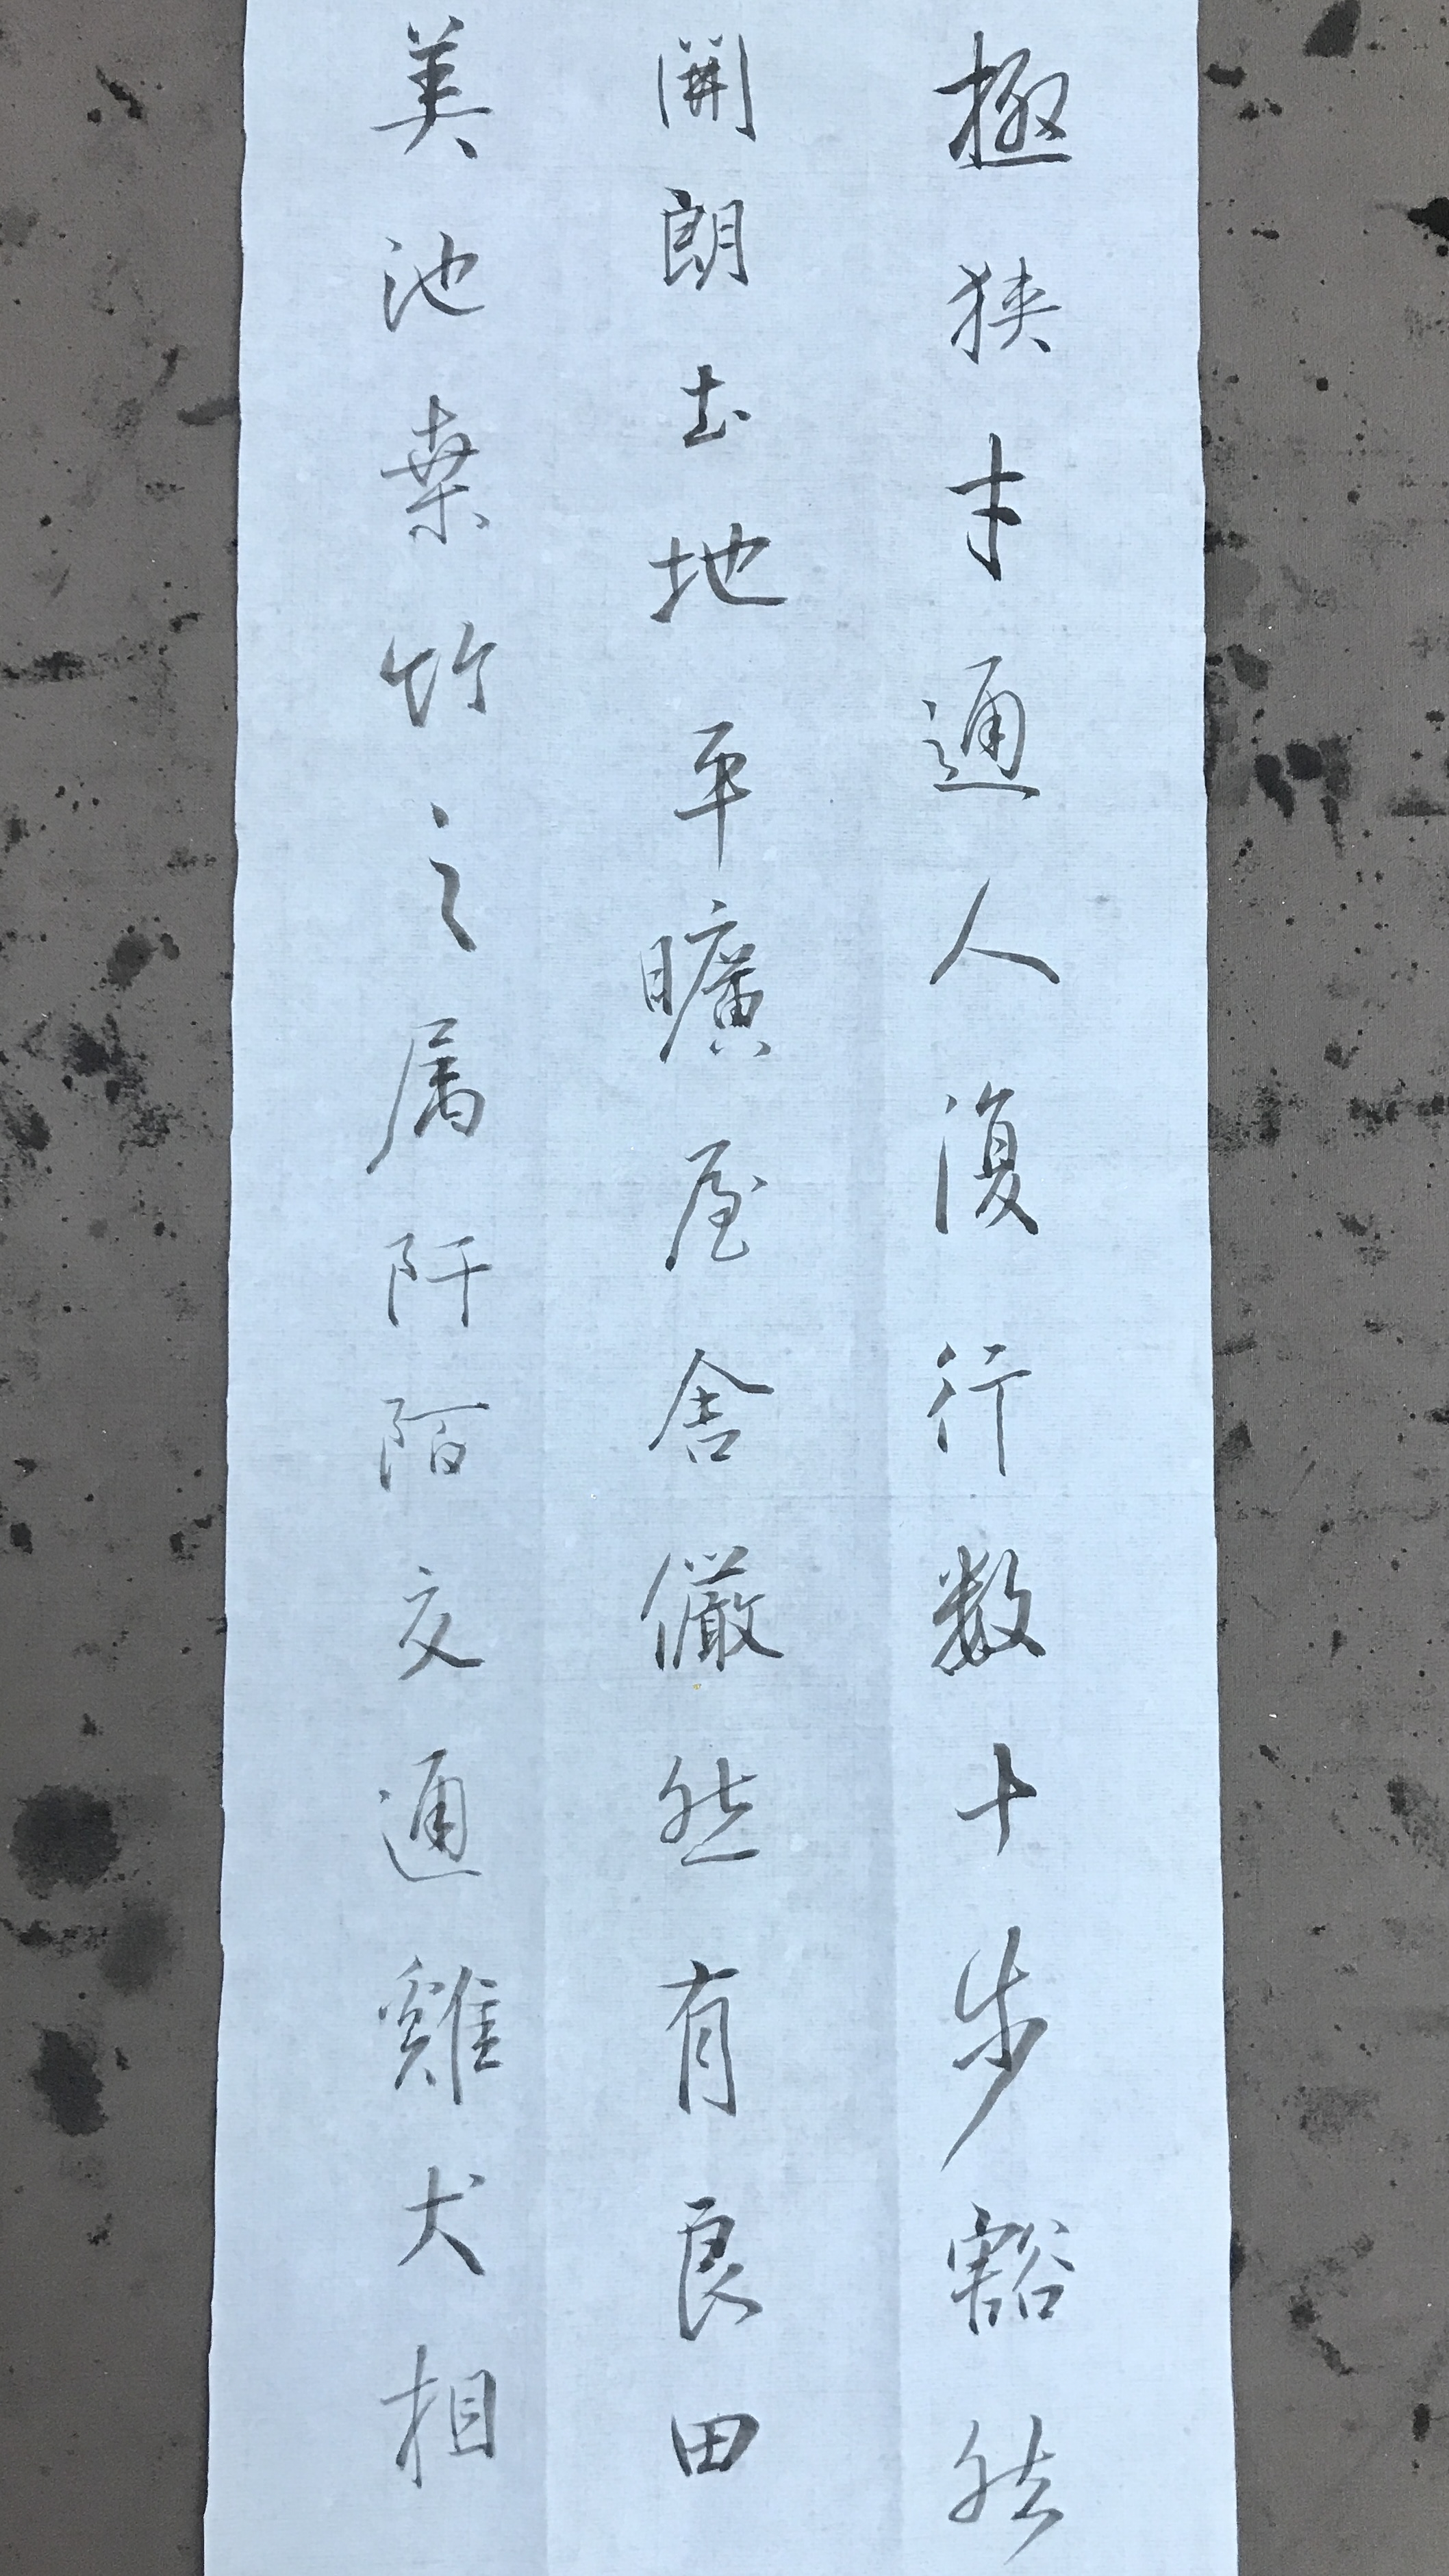 極狹才通人復行数十步豁然
開朗土地平曠屋舍儼然有良田
美池桒竹之属阡陌交通雞犬相